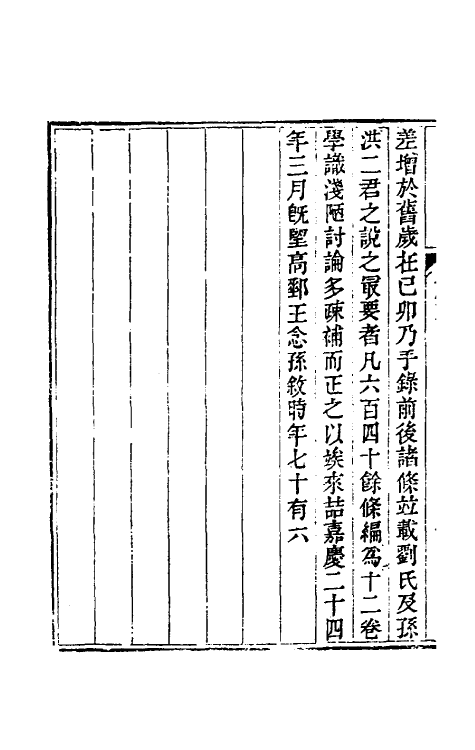 差增於舊歲在己卯乃手錄前後諸條竝載劉氏及孫
洪二君之說之最要者凡六百四十餘條編爲十二卷
學識淺陋討論多疎補而正之以竢來喆嘉慶二十四
年三月旣望高郵王念孫敘時年七十有六